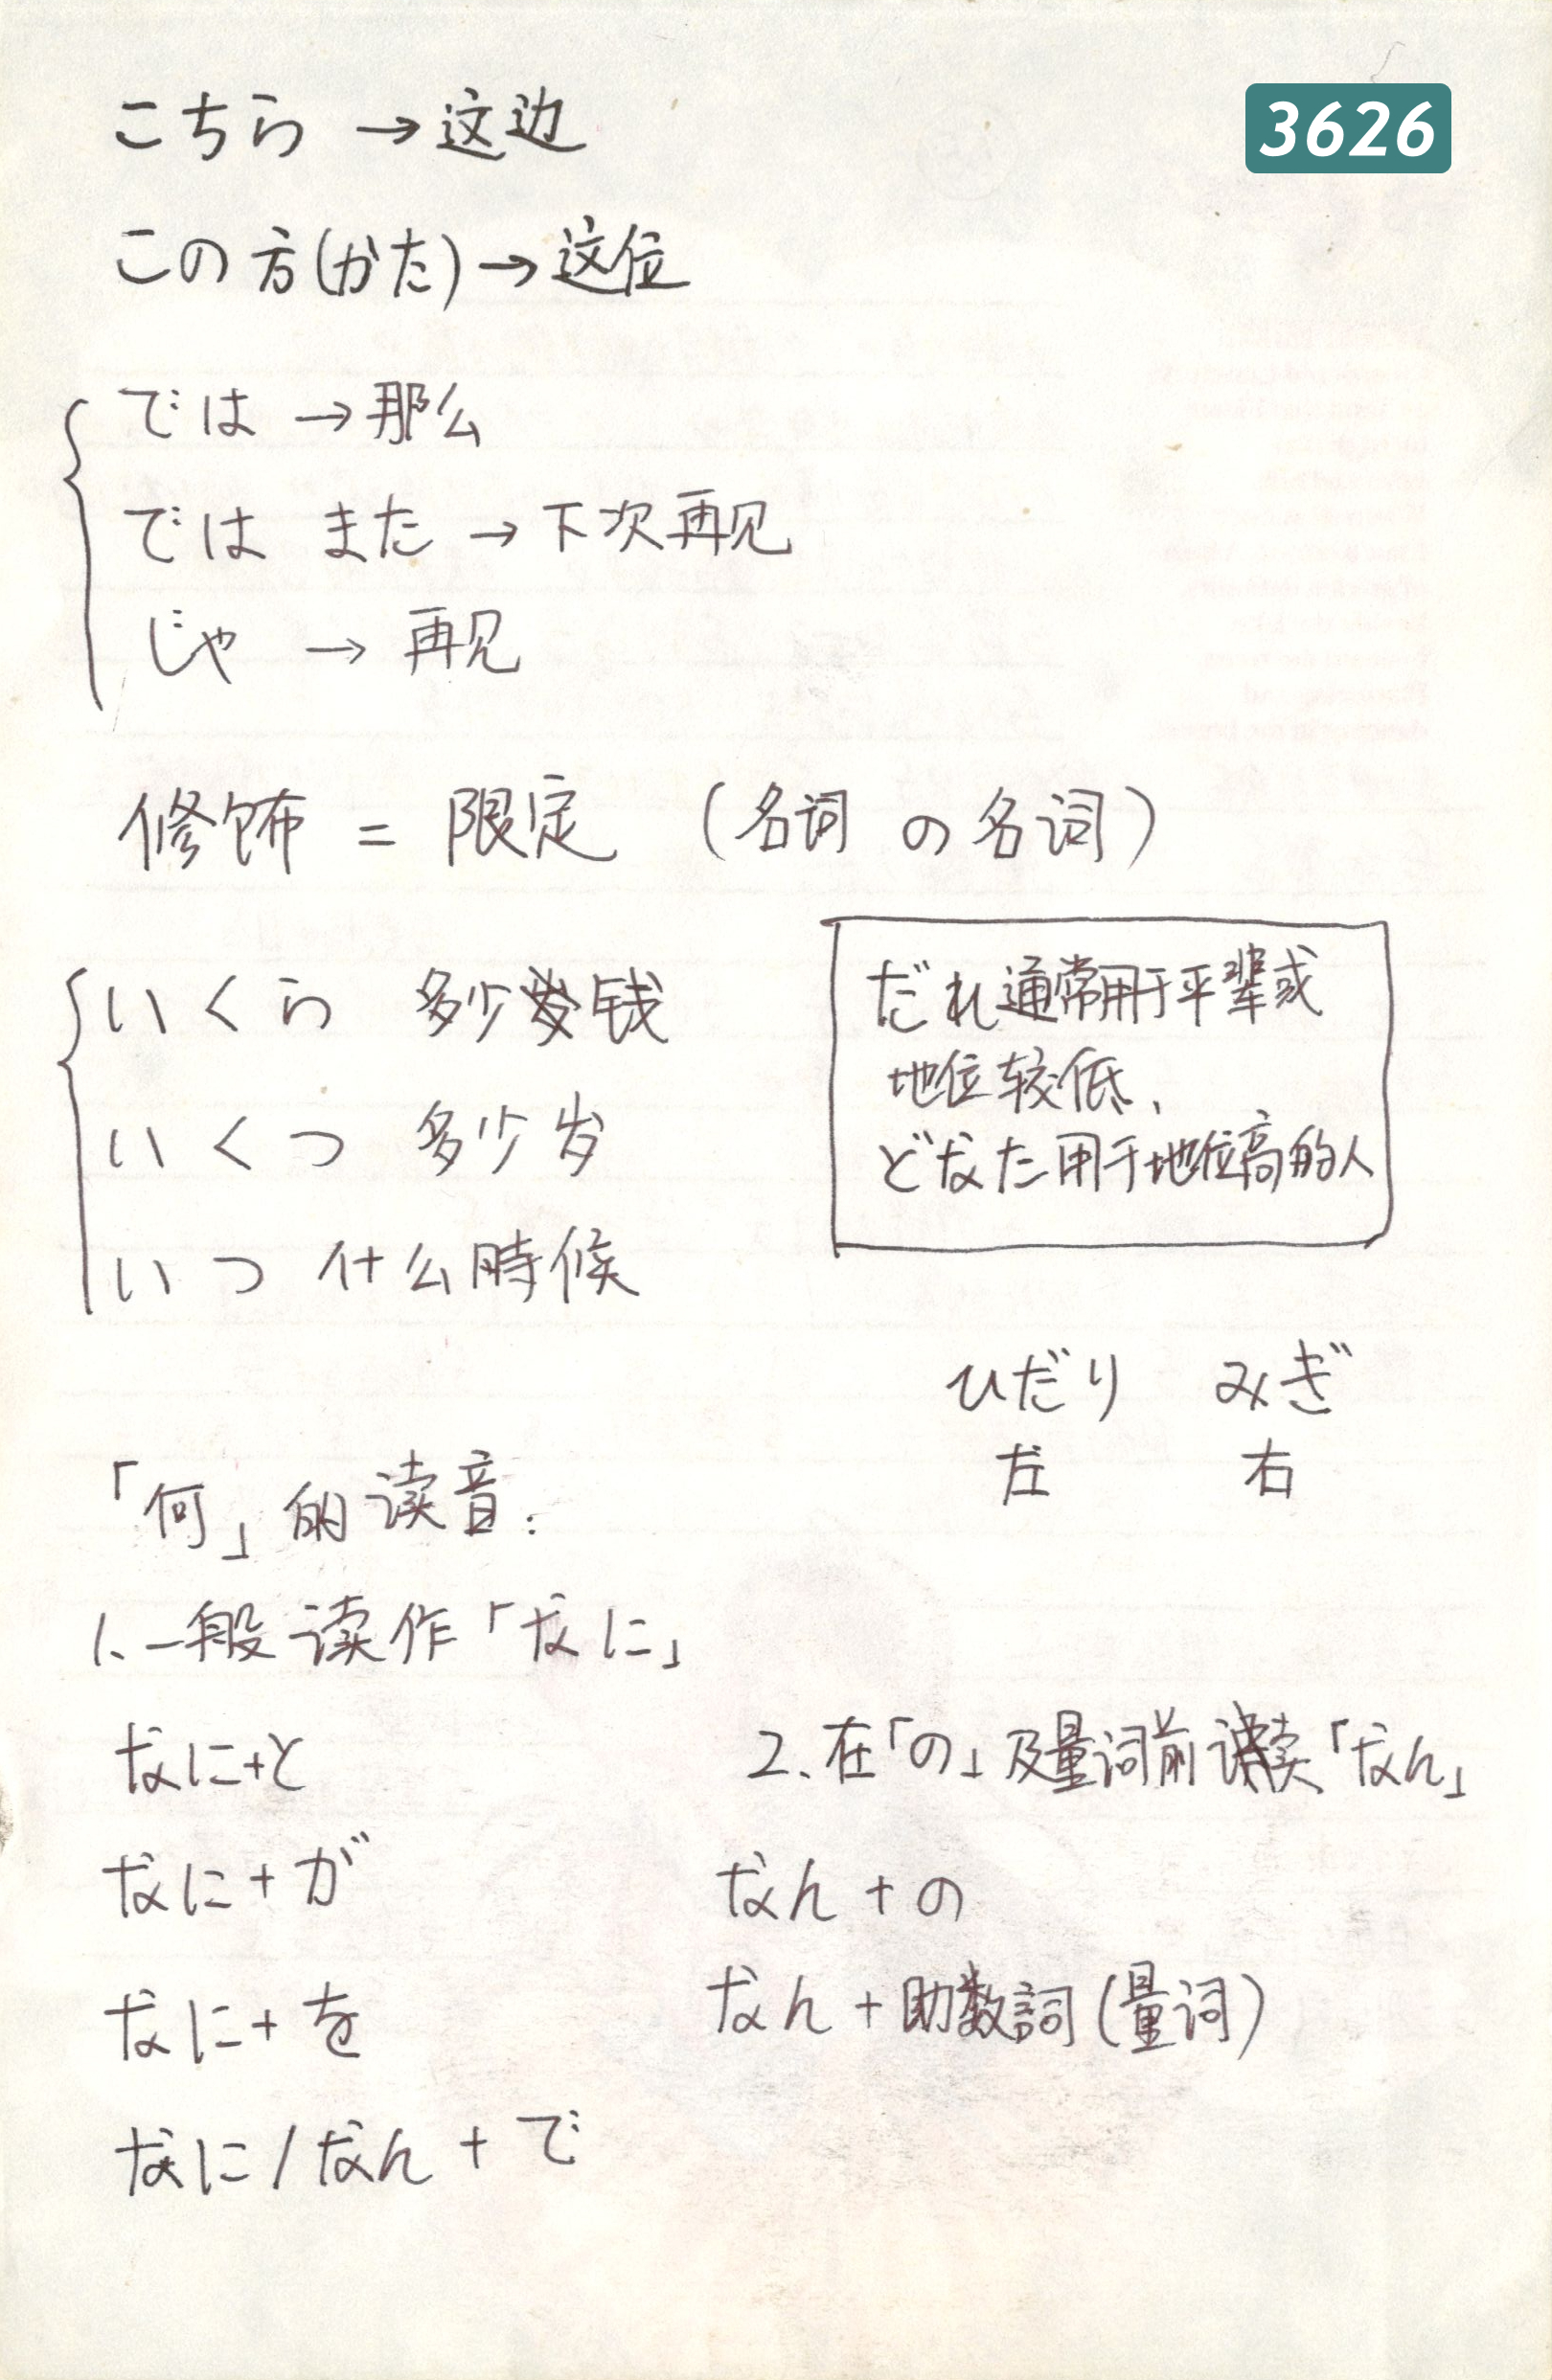 3626
こちら → 这边
この方(かた) → 这位
では → 那么
では また → 下次再见
じゃ → 再见
修饰 = 限定 (名词 の 名词)
いくら 多少钱
いくつ 多少岁
いつ 什么時候
だれ通常用于平辈或
地位较低、
どなた用于地位高的人
ひだり みぎ
左 右
「何」的读音:
1、一般读作「なに」
なに+と
なに+が
なに+を
なに/なん+で
2、在「の」及量词前读「なん」
なん+の
なん+助数詞(量词)